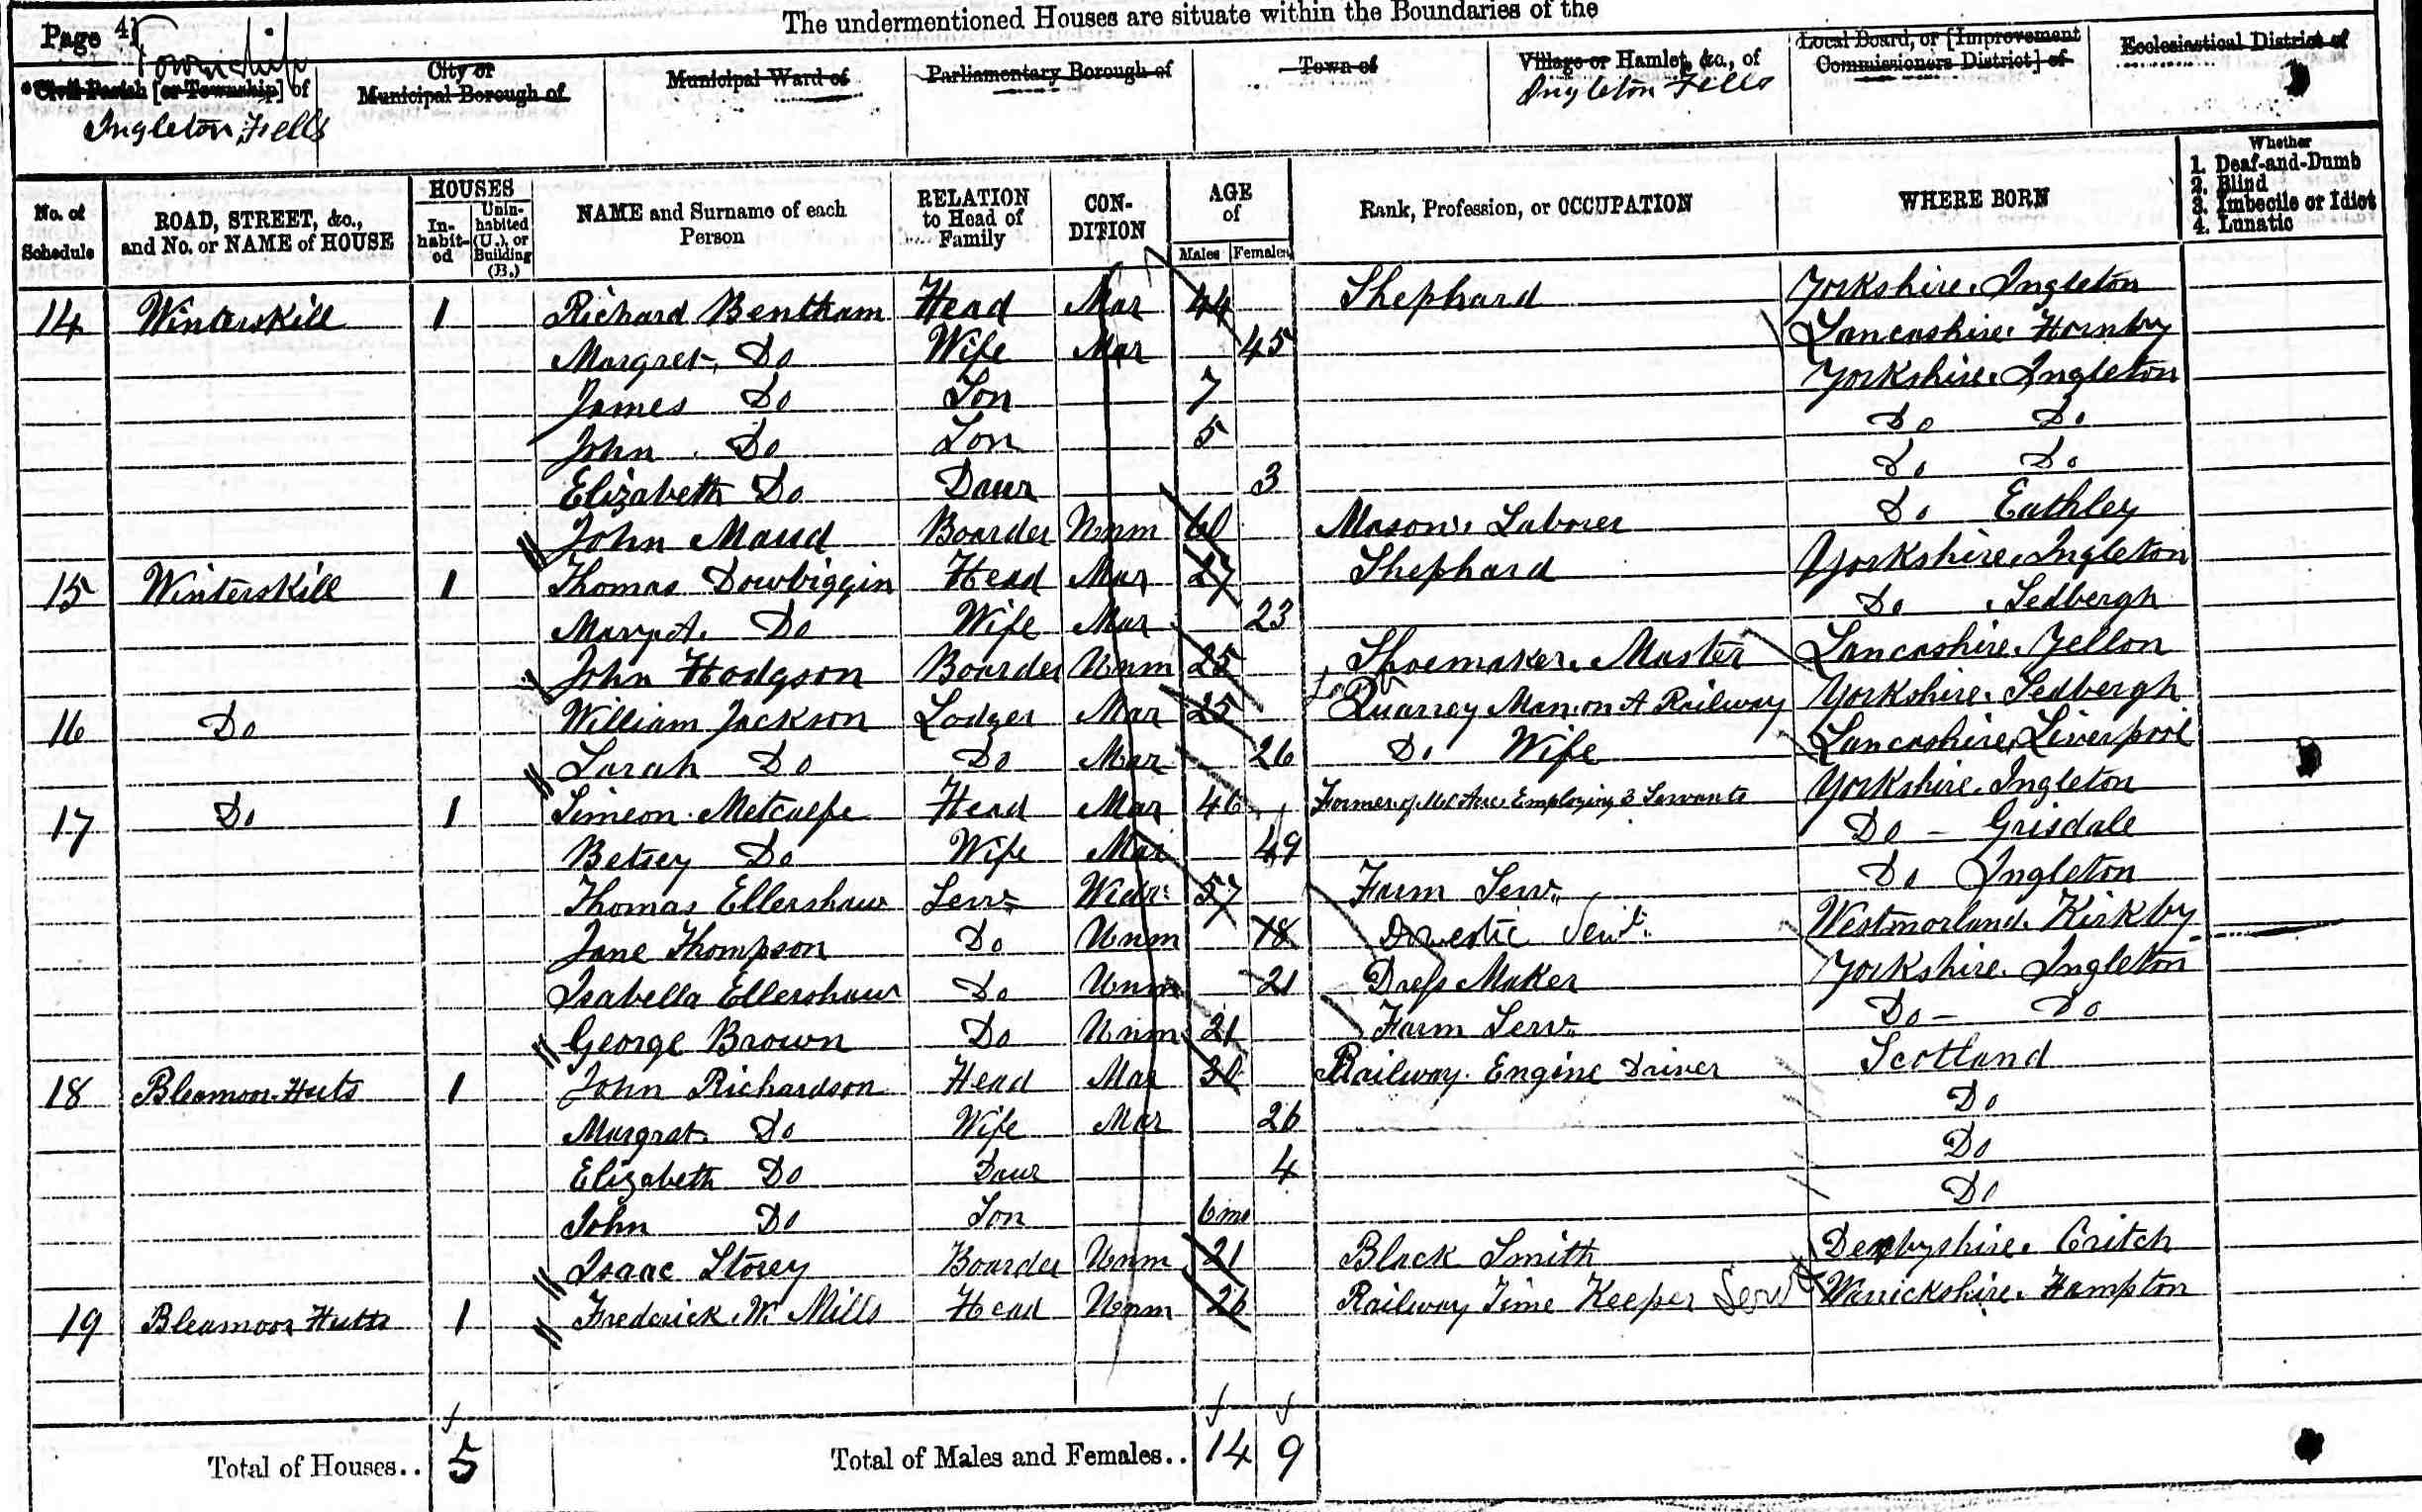 The undermentioned Houses are situate within the Boundaries of the
Page 4
Township
Civil Parish [or Township] of
Ingleton Fells
City or
Municipal Borough of
Municipal Ward of
Parliamentary Borough of
Town of
Village or Hamlet, &c., of
Ingleton Fells
Local Board, or [Improvement
Commissioners District] of
Ecclesiastical District of
No. of
Schedule
ROAD, STREET, &c.,
and No. or NAME of HOUSE
HOUSES
In-
habit-
ed
Unin-
habited
(U.), or
Building
(B.)
NAME and Surname of each
Person
RELATION
to Head of
Family
CON-
DITION
AGE
of
Males Females
Rank, Profession, or OCCUPATION
WHERE BORN
Whether
1. Deaf-and-Dumb
2. Blind
3. Imbecile or Idiot
4. Lunatic
14 Winterskill 1 Richard Bentham Head Mar 44 Shephard Yorkshire. Ingleton
Margret. Do Wife Mar 45 Lancashire. Hornby
James Do Son 7 Yorkshire. Ingleton
John Do Son 5 Do Do
Elizabeth Do Daur 3 Do Do
John Maud Boarder Unm 60 Mason's Laborer Do Eathley
15 Winterskill 1 Thomas Dowbiggin Head Mar 27 Shephard Yorkshire. Ingleton
Mary A. Do Wife Mar 23 Do Sedbergh
John Hodgson Boarder Unm 25 Shoemaker. Master Lancashire. Yellon
16 Do William Jackson Lodger Mar 25 Quarrey Man on A Railway Yorkshire. Sedbergh
Sarah Do Do Mar 26 Do Wife Lancashire Liverpool
17 Do 1 Simeon Metcalfe Head Mar 46 Farmer of Acre Employing 3 Servants Yorkshire. Ingleton
Betsey Do Wife Mar 49 Do - Grisdale
Thomas Ellershaw Serv Widr 57 Farm Serv Do Ingleton
Jane Thompson Do Unm 18 Domestic Servt. Westmorland. Kirkby
Isabella Ellershaw Do Unm 21 Dress Maker Yorkshire. Ingleton
George Brown Do Unm 21 Farm Serv Do - Do
18 Bleamoor Huts 1 John Richardson Head Mar 30 Railway Engine Driver Scotland
Margrat Do Wife Mar 26 Do
Elizabeth Do Daur 4 Do
John Do Son 6mo Do
Isaac Storey Boarder Unm 21 Black Smith Derbyshire. Critch
19 Bleamoor Hutts 1 Frederick. W. Mills Head Unm 26 Railway Time Keeper Servt Warickshire. Hampton
Total of Houses.. 5 Total of Males and Females.. 14 9